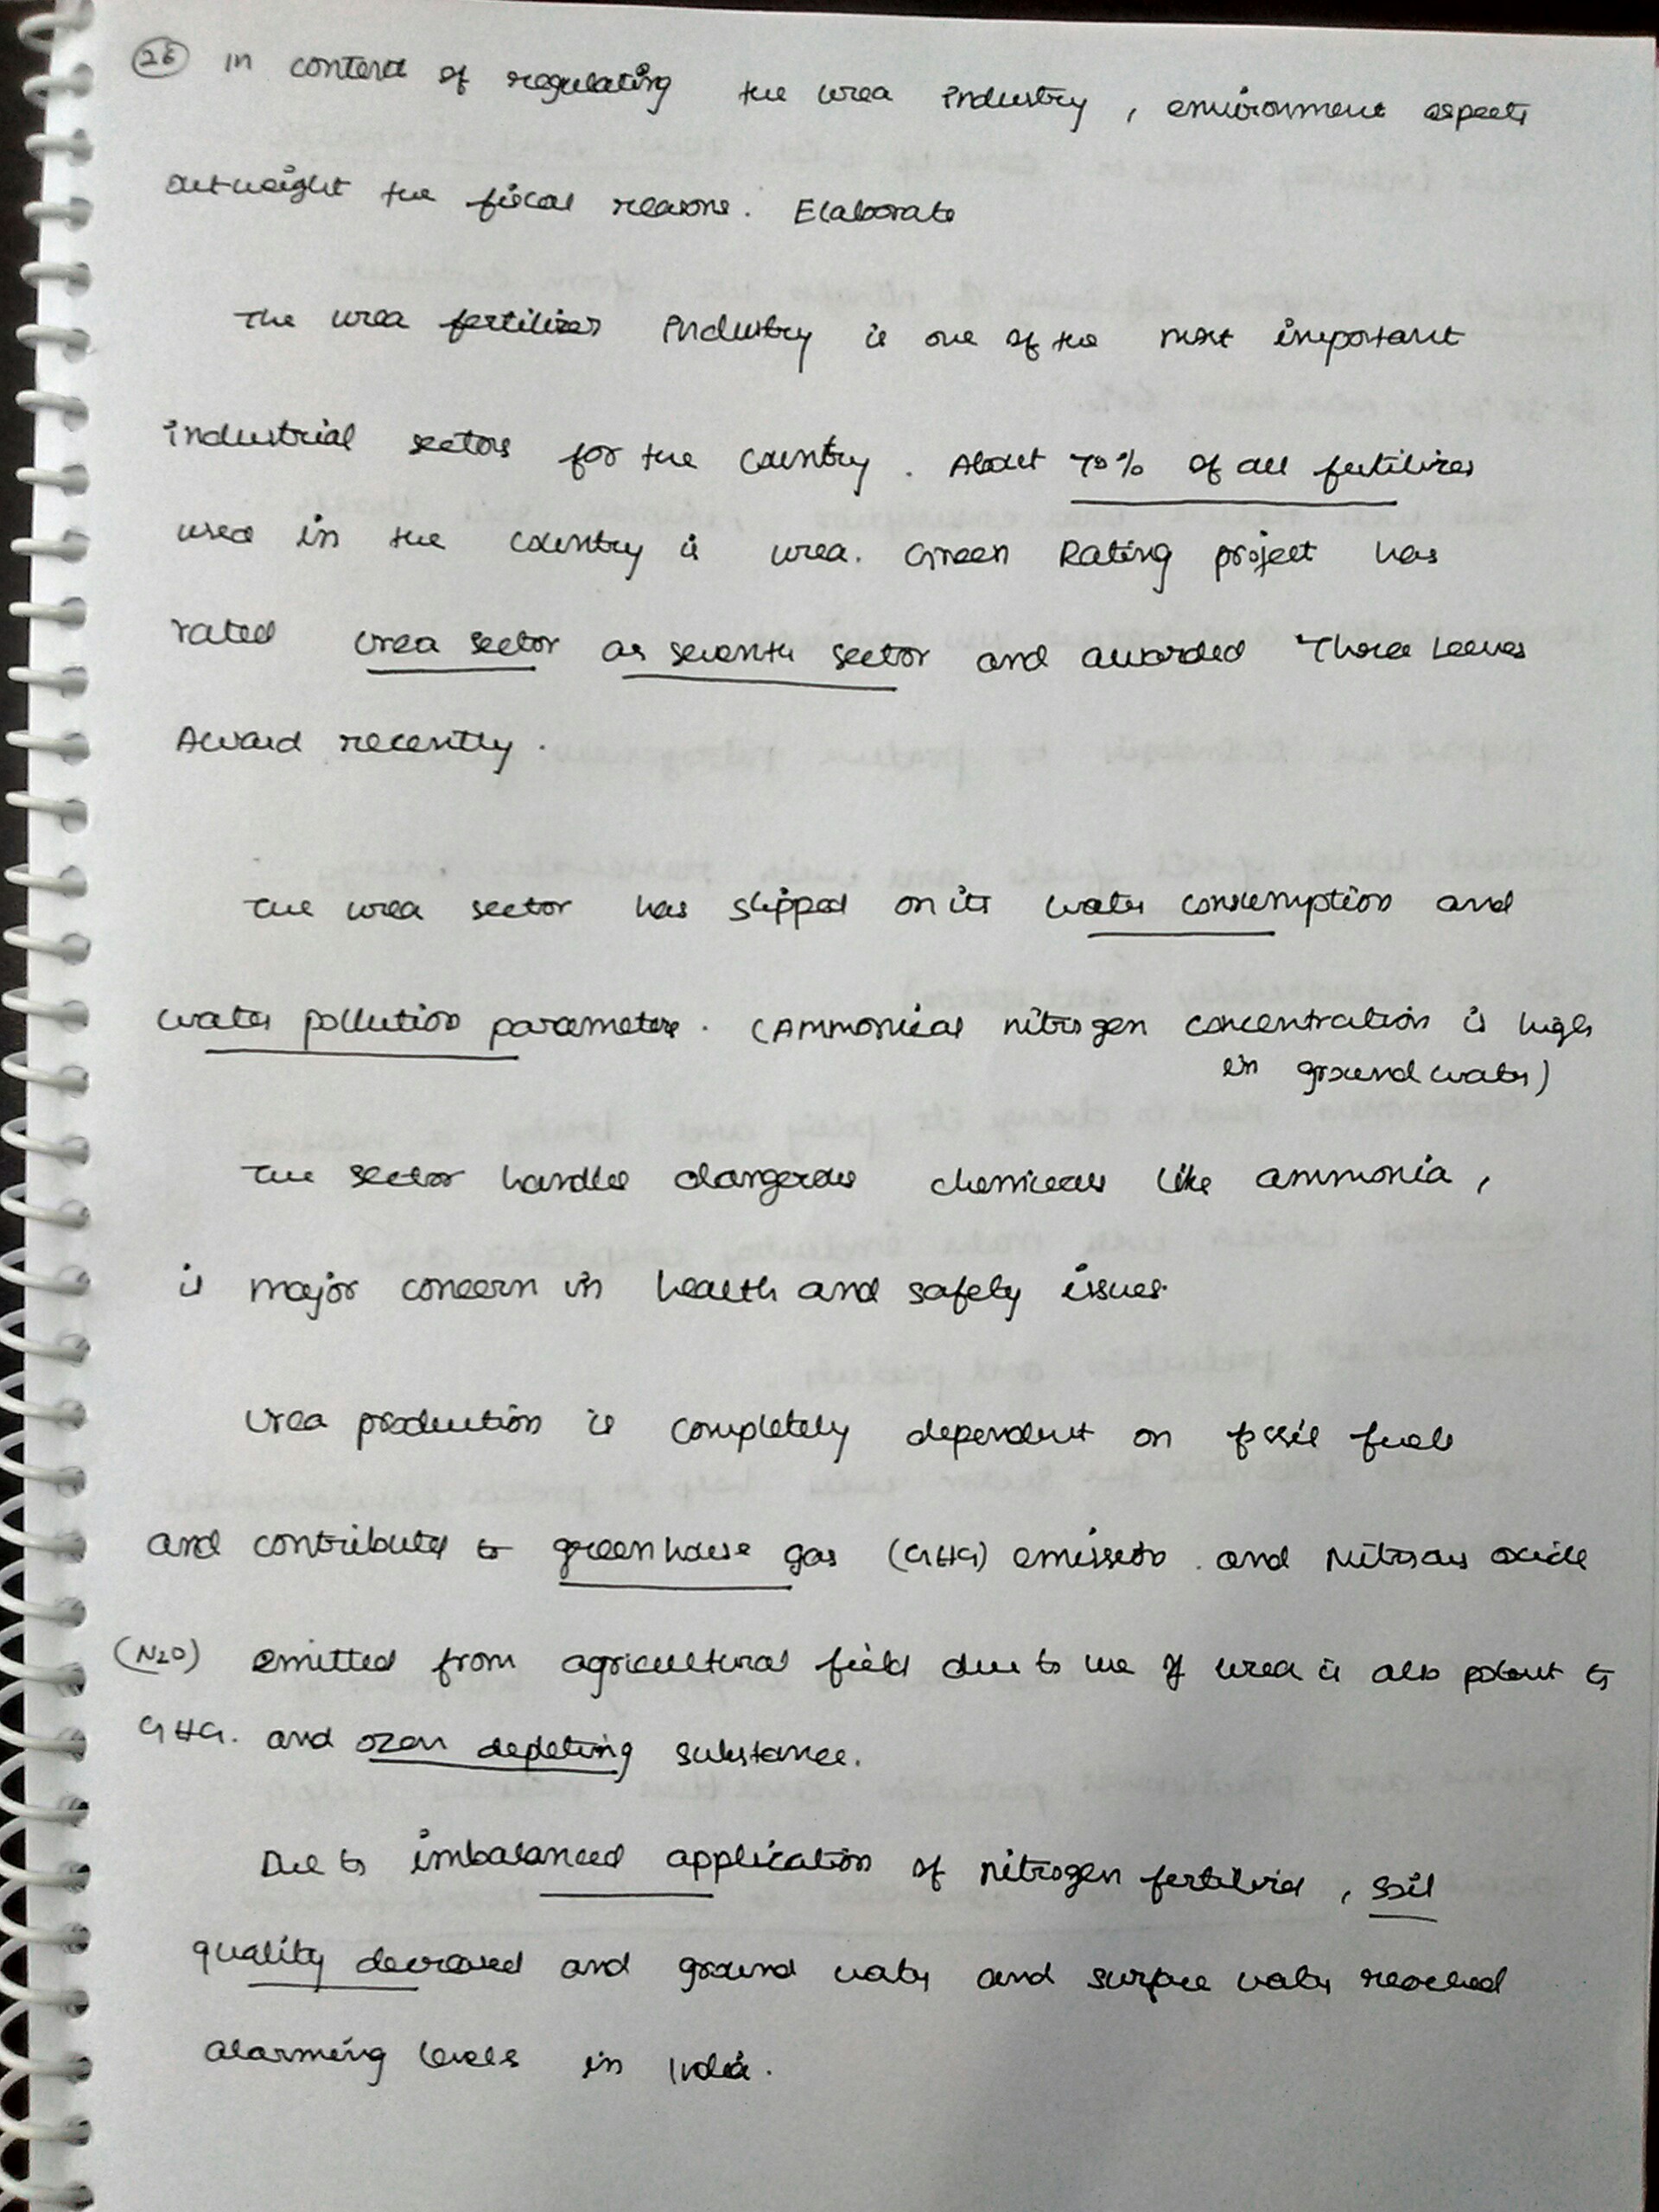 26 in content of regulating the urea industry, environment aspects
outweight the fiscal reasons. Elaborate
The urea fertilizer industry is one of the most important
industrial sectors for the country. About 70% of all fertilizers
used in the country is urea. Green Rating project has
rated urea sector as seventh sector and awarded Three Leaves
Award recently.
The urea sector has slipped on its water consumption and
water pollution parameters. (Ammonical nitrogen concentration is high
in ground water)
The sector handles dangerous chemicals like ammonia,
is major concern in health and safety issues.
Urea production is completely dependent on fossil fuels
and contributed to greenhouse gas (GHG) emission. and Nitrous oxide
(N2O) emitted from agricultural field due to use of urea is also potent to
GHG. and ozon depleting substance.
Due to imbalanced application of nitrogen , soil
quality decreased and ground water and surface water reached
alarming levels in India.